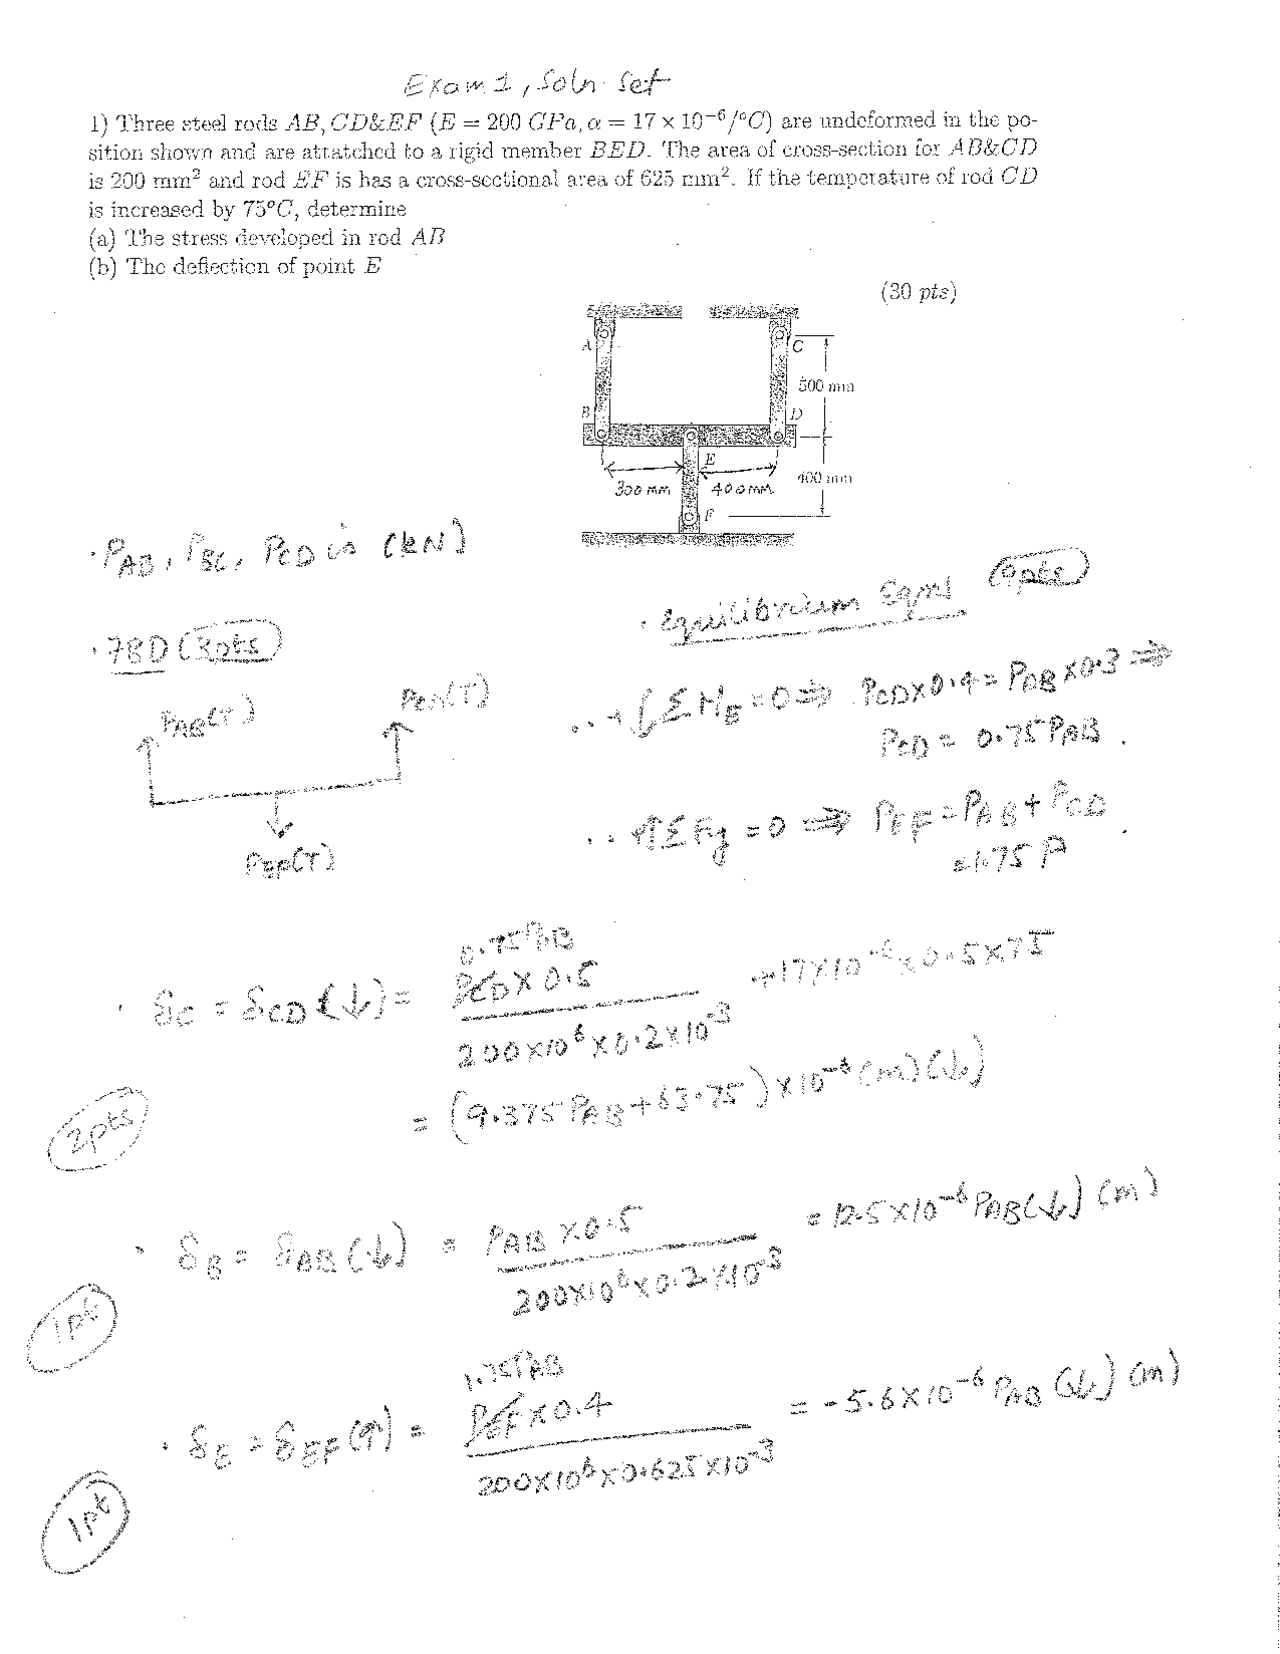 Exam 1, Soln. Set
1) Three steel rods AB, CD&EF (E = 200 GPa, α = 17 × 10⁻⁶/°C) are undeformed in the po-
sition shown and are attatched to a rigid member BED. The area of cross-section for AB&CD
is 200 mm² and rod EF is has a cross-sectional area of 625 mm². If the temperature of rod CD
is increased by 75°C, determine
(a) The stress developed in rod AB
(b) The deflection of point E
(30 pts)
A
C
500 mm
B
D
E
400 mm
300 mm
400 mm
F
· P_AB, P_BC, P_CD is (kN)
· Equilibrium Eqns
· FBD (3pts)
P_AB(T)
P_CD(T)
P_EF(T)
ΣM_E = 0 ⇒ P_CD × 0.4 = P_AB × 0.3 ⇒
P_CD = 0.75 P_AB.
+↑ΣFy = 0 ⇒ P_EF = P_AB + P_CD
= 1.75 P
0.75 P_AB
· δ_C = δ_CD (↓) = P_CD × 0.5 / 200×10⁶ × 0.2×10⁻³ + 17×10⁻⁶ × 0.5×75
= (9.375 P_AB + 63.75) × 10⁻⁶ (m) (↓)
2pts
· δ_B = δ_AB (↓) = P_AB × 0.5 / 200×10⁶ × 0.2×10⁻³ = 12.5×10⁻⁶ P_AB (↓) (m)
1pt
1.75 P_AB
· δ_E = δ_EF (↑) = P_EF × 0.4 / 200×10⁶ × 0.625×10⁻³ = -5.6×10⁻⁶ P_AB (↓) (m)
1pt